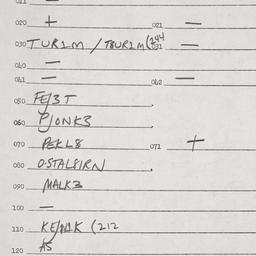 020 + 021 —
030 TUR1M / TBUR1M (244 031 —
040 —
041 — 042 —
050 FE/3T
060 P/ONK3
070 PEKL8 071 +
080 O·STAL8IRN
090 MALK3
100 —
110 (212
120 A5